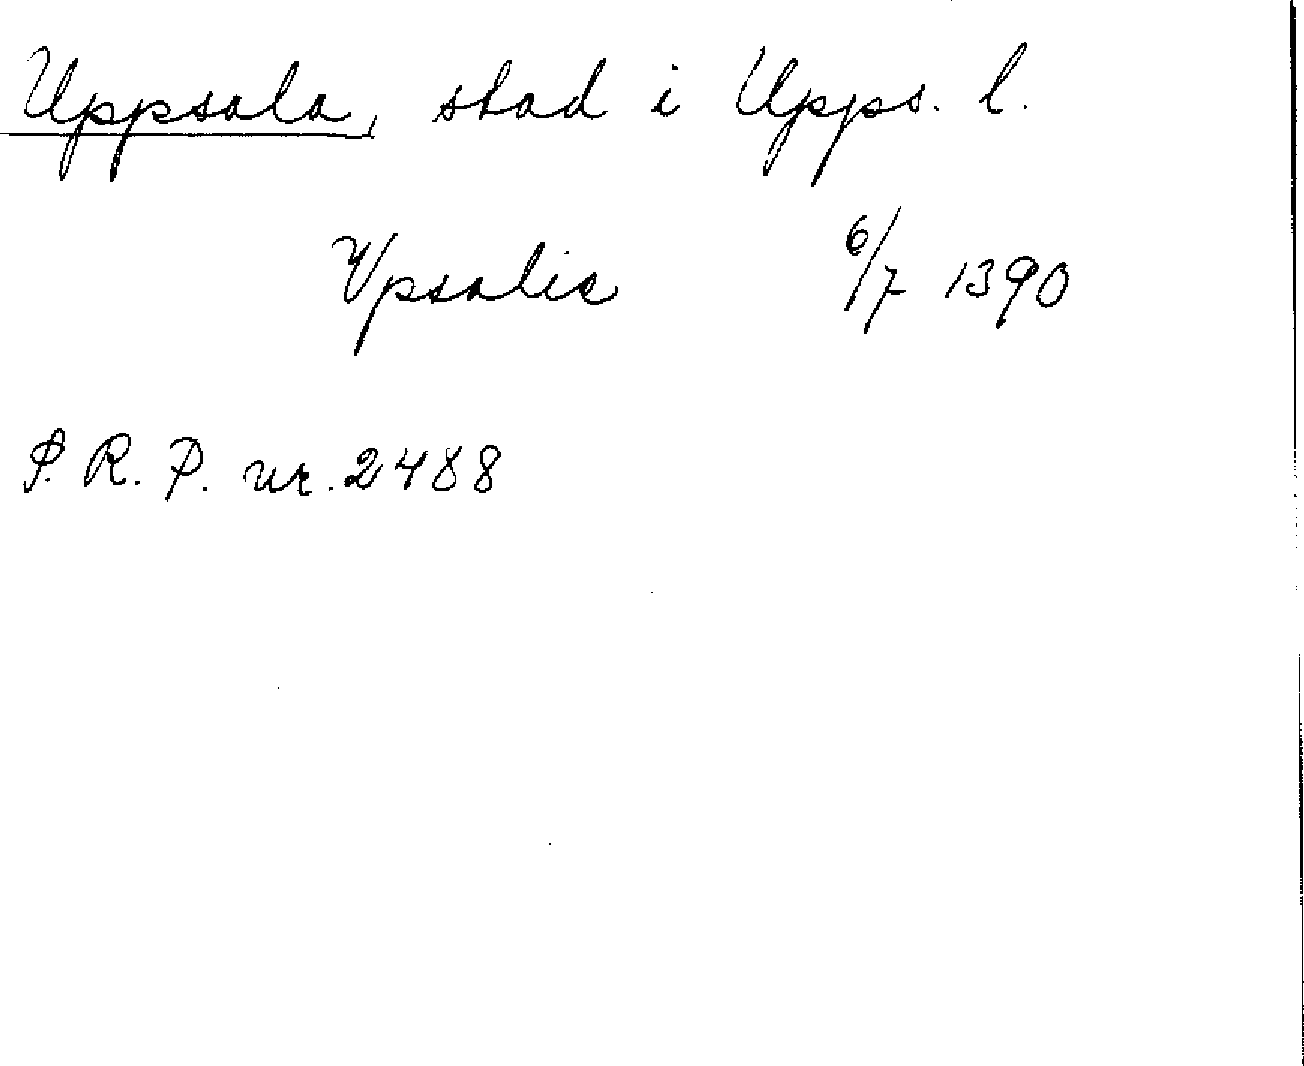 Uppsala, stad i Upps. l.
Vpsalie 6/7 1390
S. R. P. nr. 2488